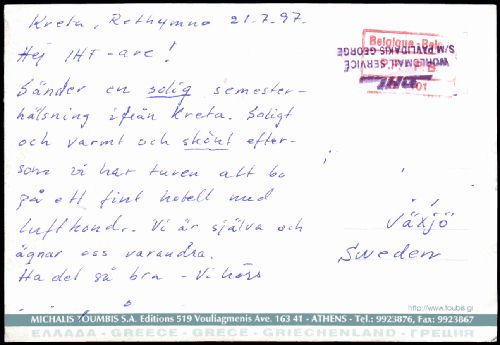 Kreta, Rethymno 21.7.97.
Hej IHT-are!
Sänder en solig semester-
hälsning ifrån Kreta. Soligt
och varmt och skönt efter-
som vi har turen att bo
på ett fint hotell med
luftkond. Vi är själva och
ägnar oss varandra.
Ha det så bra - Vi hörs
Belgique - Bel
P.P.
B
01
WORLDMAIL SERVICE
S/M PAVLIDAKIS GEORGE
DHL
Växjö
Sweden
http://www.toubis.gr
MICHALIS TOUMBIS S.A. Editions 519 Vouliagmenis Ave. 163 41 - ATHENS - Tel.: 9923876, Fax: 9923867
ΕΛΛΑΔΑ - GREECE - GRECE - GRIECHENLAND - ГРЕЦИЯ